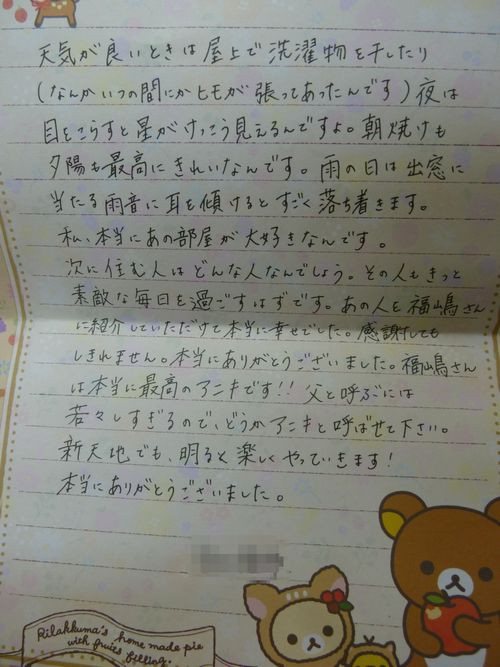 天気が良いときは屋上で洗濯物を干したり
(なんかいつの間にかヒモが張ってあったんです)夜は
目をこらすと星がけっこう見えるんですよ。朝焼けも
夕陽も最高にきれいなんです。雨の日は出窓に
当たる雨音に耳を傾けるとすごく落ち着きます。
私、本当にあの部屋が大好きなんです。
次に住む人はどんな人なんでしょう。その人もきっと
素敵な毎日を過ごすはずです。あの人を福嶋さん
に紹介していただけて本当に幸せでした。感謝しても
しきれません。本当にありがとうございました。福嶋さん
は本当に最高のアニキです!!父と呼ぶには
若々しすぎるので、どうかアニキと呼ばせて下さい。
新天地でも、明るく楽しくやっていきます!
本当にありがとうございました。
Rilakkuma's home made pie
with fruits filling.